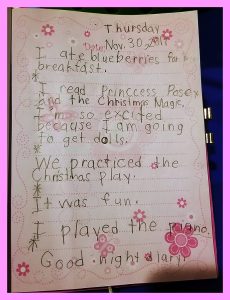 Thursday
Date Nov. 30, 2017
I ate blueberries for
breakfast.
I read Princcess Posey
and the Christmas Magic.
I'm so excited
because I am going
to get dolls.
We practiced the
Christmas play.
It was fun.
I played the piano.
Good night diary!